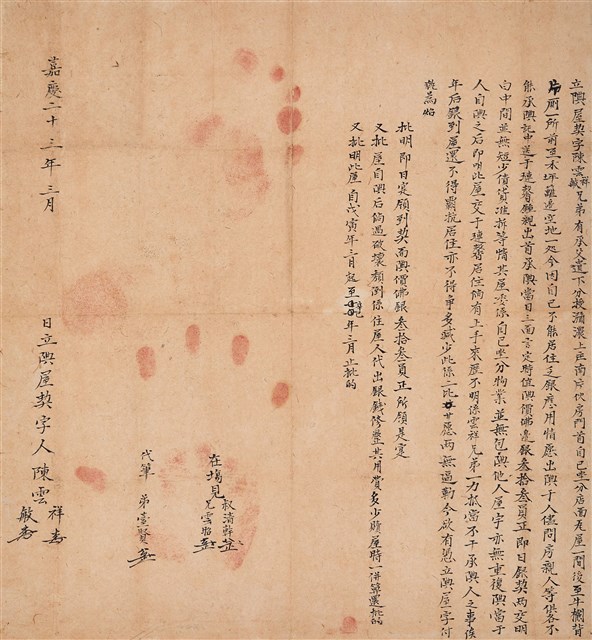 立典屋契字陳雲祥敏兄弟有承父遺下分授瀰濃上庄南片伙房門首自己坐分店面瓦屋一間後至牛欄背
廁一所前至禾坪籬邊空地一處今因自己不能居住乏銀應用情愿出典于人儘問房親人等俱各不
能承典託中送于璉馨親出首承典當日三面言定時值典價佛邊銀叁拾叁員正即日銀契兩交明
白中間並無短少債貨准拆等情其屋委係自己坐分物業並無包典他人屋宇亦無重復典當于
人自典之后即明此屋交于璉馨居住倘有上手來歷不明係雲祥兄弟一力抵當不干承典人之事後
年后銀到屋還不得霸抗居住亦不得爭多減少此係二比甘愿兩無逼勒今欲有憑立典屋字付
執為炤
批明即日定願到契面典價佛銀叁拾叁員正所願是實
又批屋自典后倘遇破壞頹倒係住屋人代出銀錢修整共用費多少贖屋時一併算還批的
又批明此屋自戊寅年三月起至年三月止批的
在場見 叔清鮮
兄雲
代筆弟臺賢
日立典屋契字人陳雲祥敏
嘉慶二十三年三月